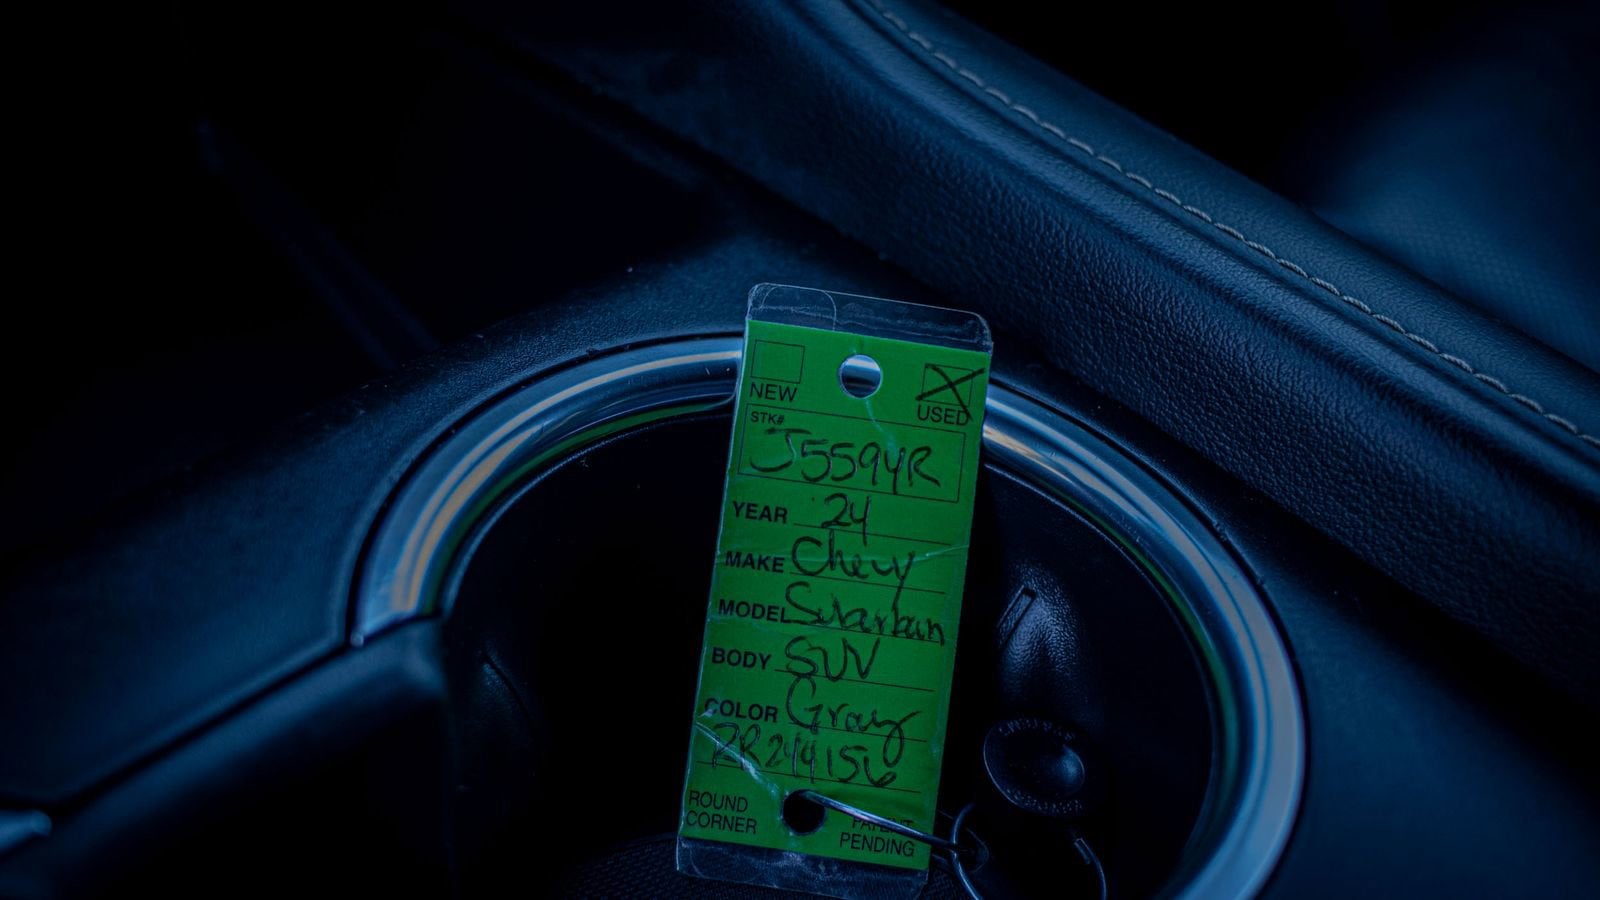 NEW USED
STK#
J5594R
YEAR 24
MAKE Chevy
MODEL Suburban
BODY SUV
COLOR Gray
RR244156
ROUND CORNER
PATENT PENDING